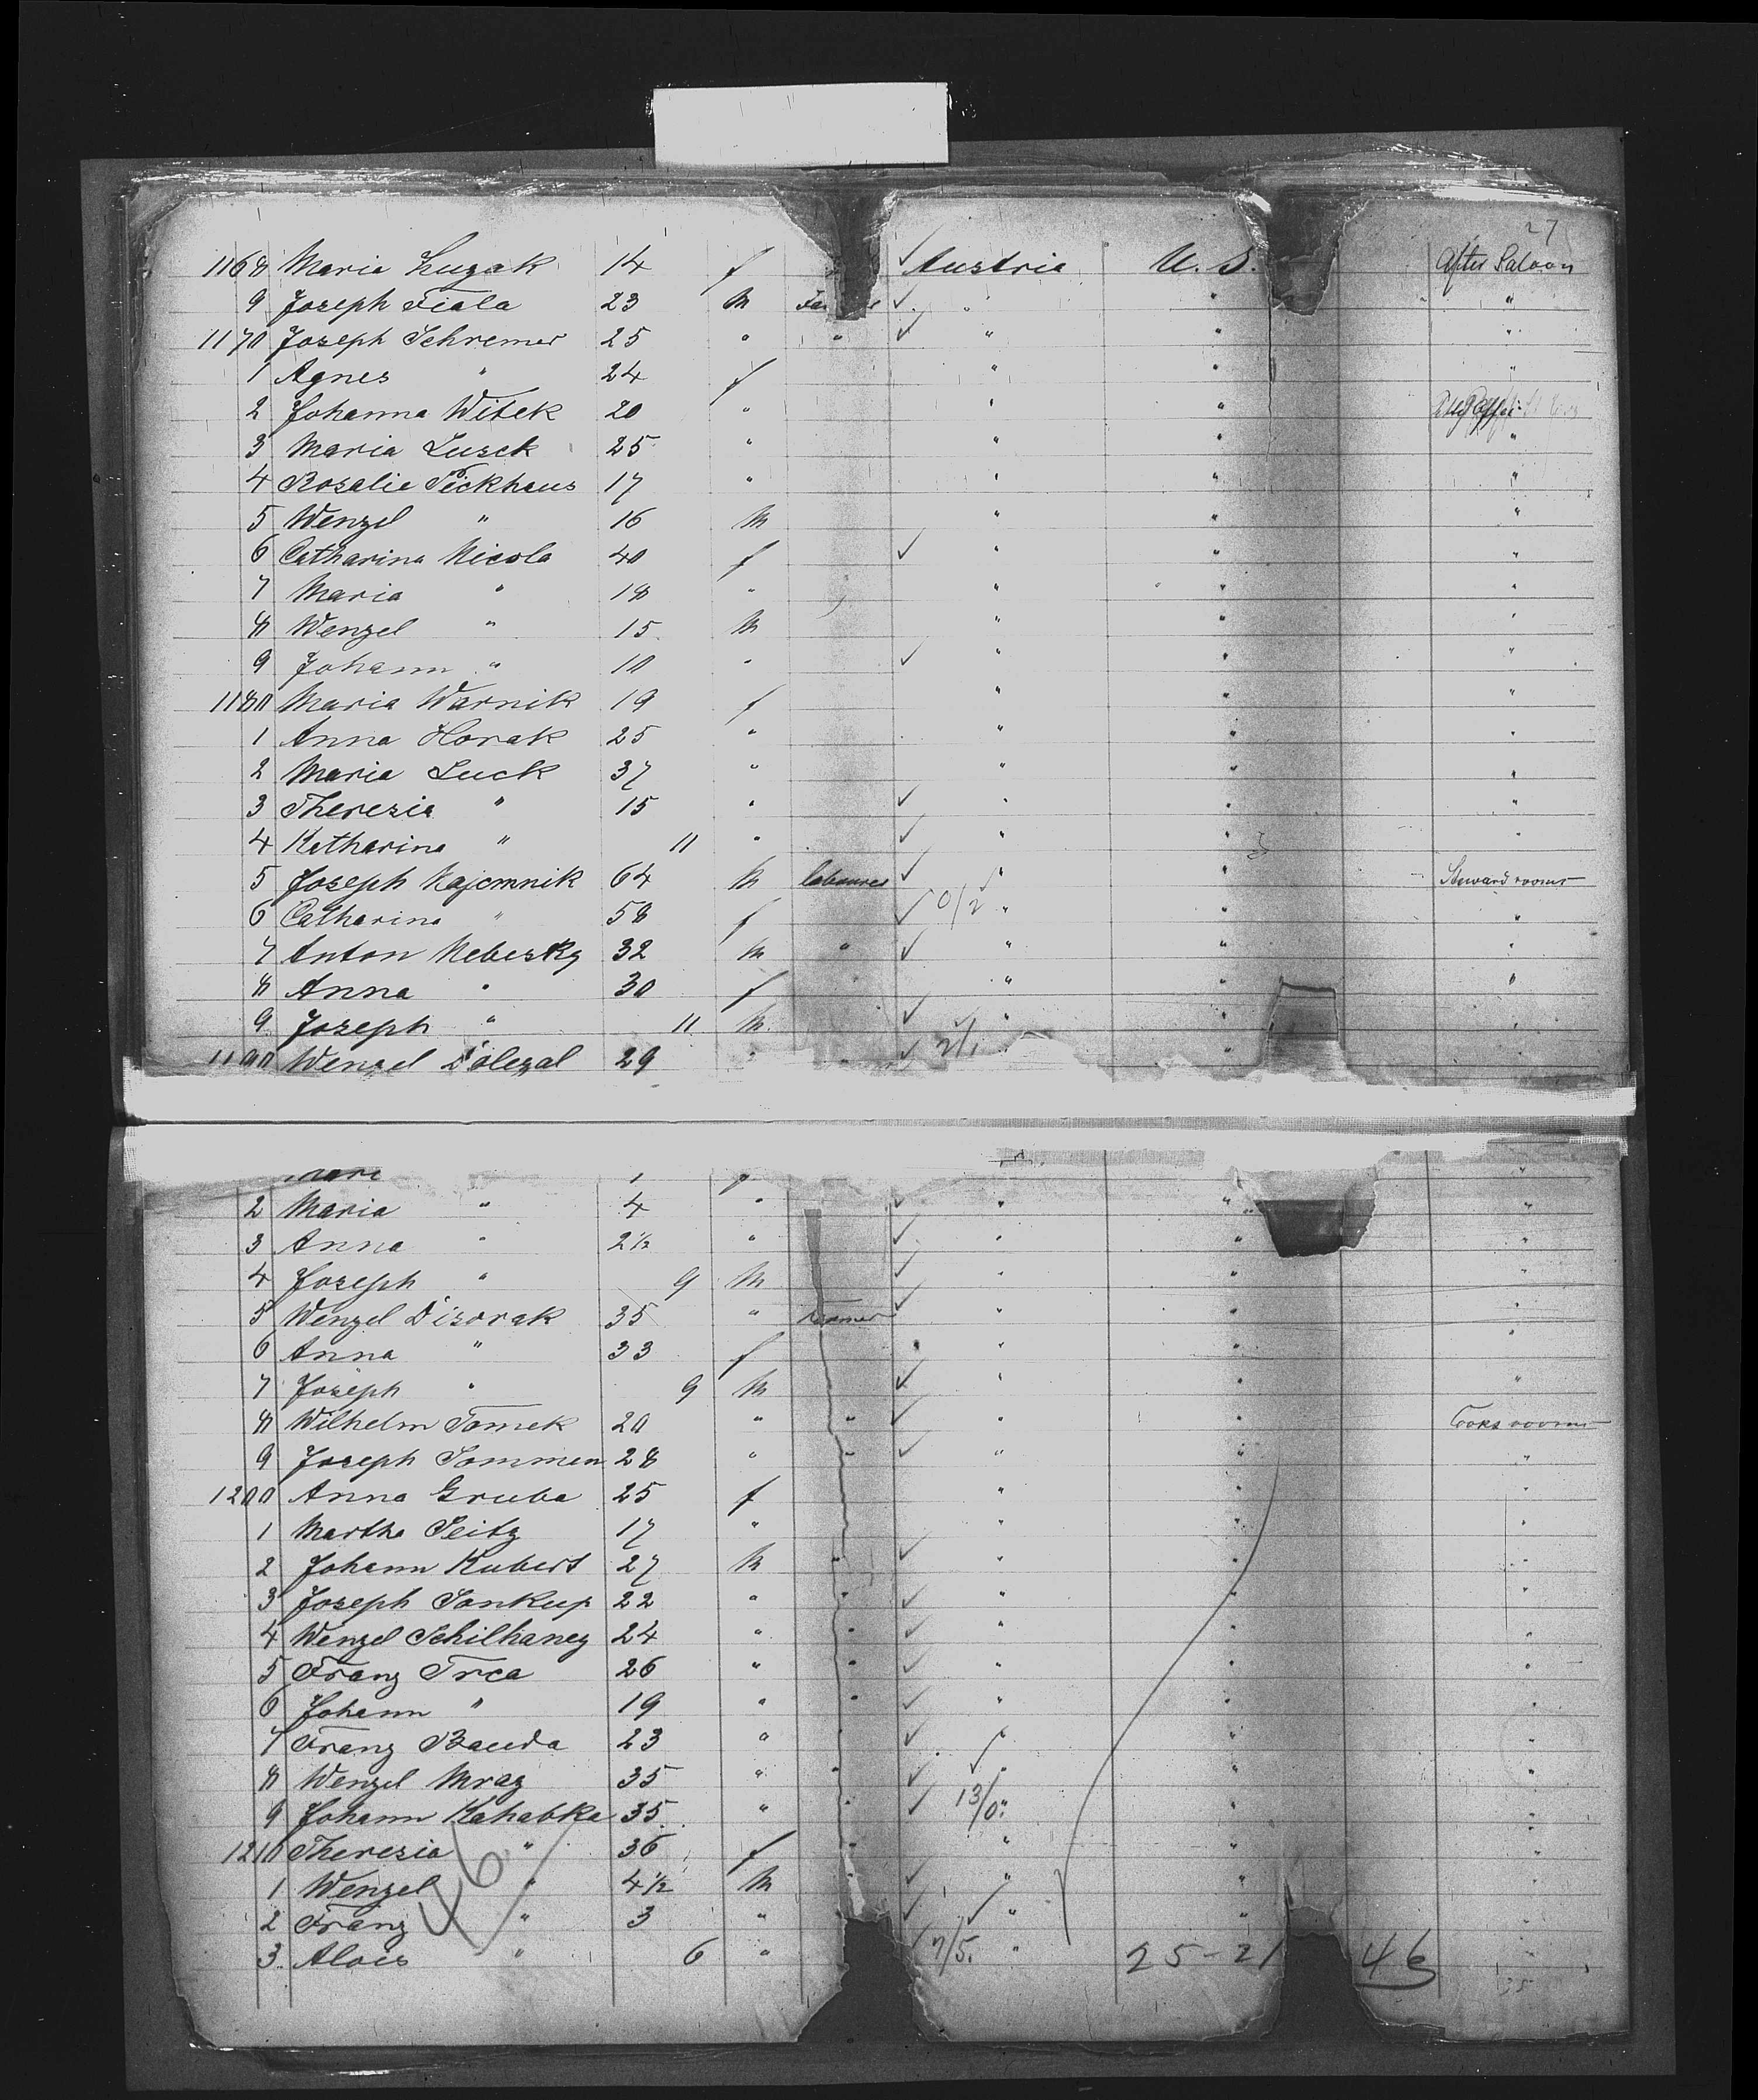 27
1168 Maria Luzak 14 f Austria U.S. After Saloon
9 Joseph Fiala 23 m " " "
1170 Joseph Schremer 25 " " " " "
1 Agnes " 24 f " " "
2 Johanna Witek 20 " " "
3 Maria Lusek 25 " " " "
4 Rosalie Peckhaus 17 " " " "
5 Wenzel " 16 m " " "
6 Catharina Nicola 40 f " " "
7 Maria " 18 " " " "
8 Wenzel " 15 m " " "
9 Johann " 10 " " " "
1180 Maria Warnik 19 f " " "
1 Anna Horak 25 " " " "
2 Maria Luck 37 " " " "
3 Theresia " 15 " " " "
4 Katharina " 11 " " " "
5 Joseph Najemnik 64 m labourer " " Steward rooms
6 Catharina " 58 f 0/2 " " "
7 Anton Nebesky 32 m " " " "
8 Anna " 30 f " " "
9 Joseph " 11 m " " "
1190 Wenzel Dolezal 29 " " 2/1 "
2 Maria " 4 " " " "
3 Anna " 2½ " " " "
4 Joseph " 9 m " " "
5 Wenzel Disorak 35 " Farmer " " "
6 Anna " 33 f " " "
7 Joseph " 9 m " " "
8 Wilhelm Tomek 20 " " " " Cooks rooms
9 Joseph Sommen 28 " " " " "
1200 Anna Gruba 25 f " " "
1 Martha Seitz 17 " " " "
2 Johann Kubert 27 m " " " "
3 Joseph Soukup 22 " " " " "
4 Wenzel Schilhaney 24 " " " " "
5 Franz Trca 26 " " " " "
6 Johann " 19 " " " " "
7 Franz Bauda 23 " " " " "
8 Wenzel Mraz 35 " " " " "
9 Johann Kahabka 35 " " 13/0 " " "
1210 Theresia " 36 f " " " "
1 Wenzel " 4½ m " " "
2 Franz " 3 " " " "
3 Alois " 6 " 7/5. " 25-21 46
46